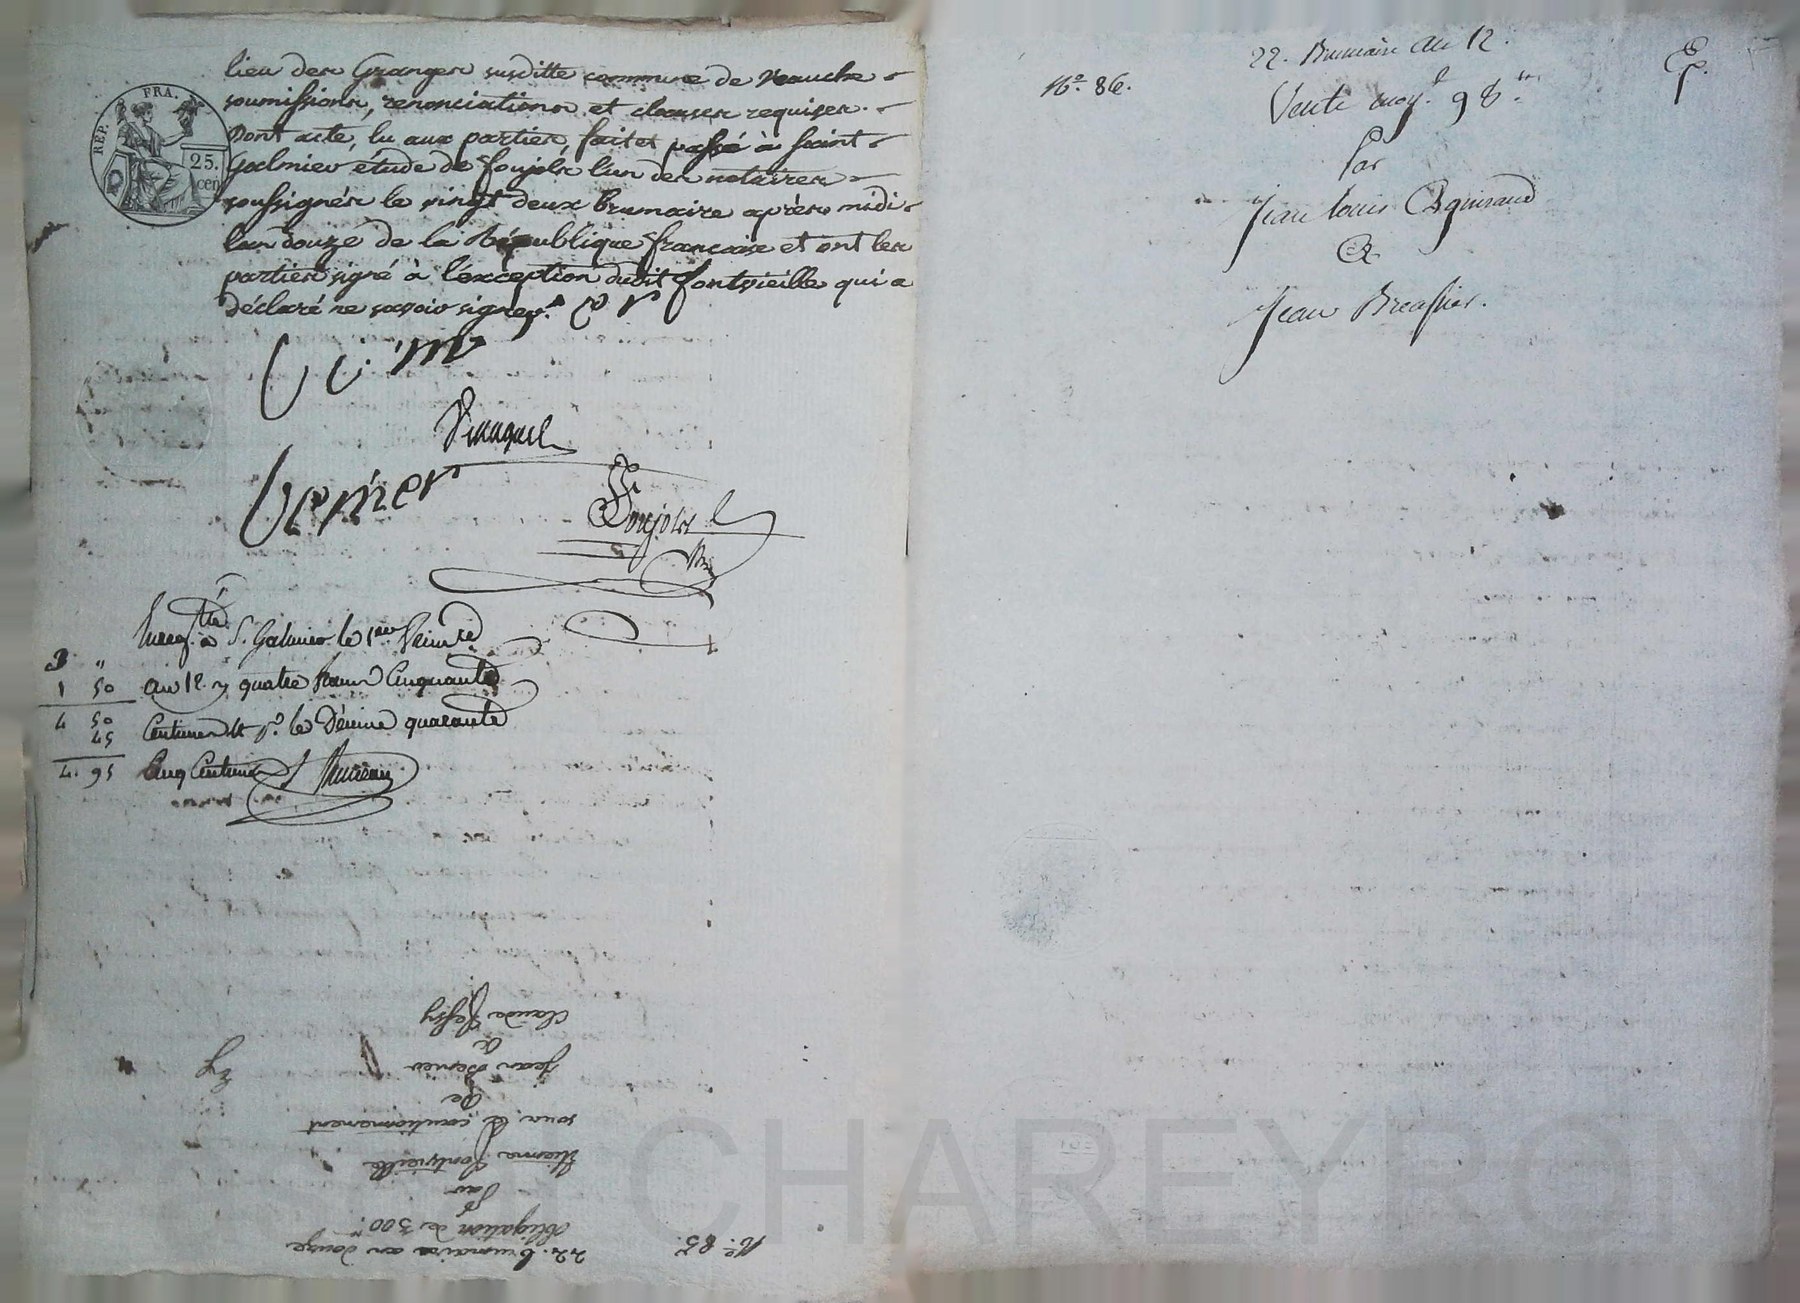 REP. FRA.
25.
cen
lieu des Granges susditte commune de Veauche
soumissions, renonciations et clauses requises.
Dont acte, lu aux parties, fait et passé à Saint
Galmier étude de Foujols l'un des notaires
soussignés le vingt deux brumaire après midi
l'an douze de la République française et ont les
parties signé à l'exception dudit Fontvieille qui a
déclaré ne savoir signer.
Vernier
Foujols
Enreg. à S. Galmier le 1er frimre
an 12. quatre francs Cinquante
Centimes & p. le Décime quarante
Cinq Centimes
3 "
1 50
4 50
45
4. 95
N.º 85.
22. brumaire an douze
obligation de 300 ₶
Par
Etienne Fontvieille
sous le cautionnement
De
Jean Vernier
A
Claude
N.º 86.
22. Brumaire an 12.
Vente moy.t 98.
Par
Jean Louis
A
Jean Brassier.
CHAREYRON